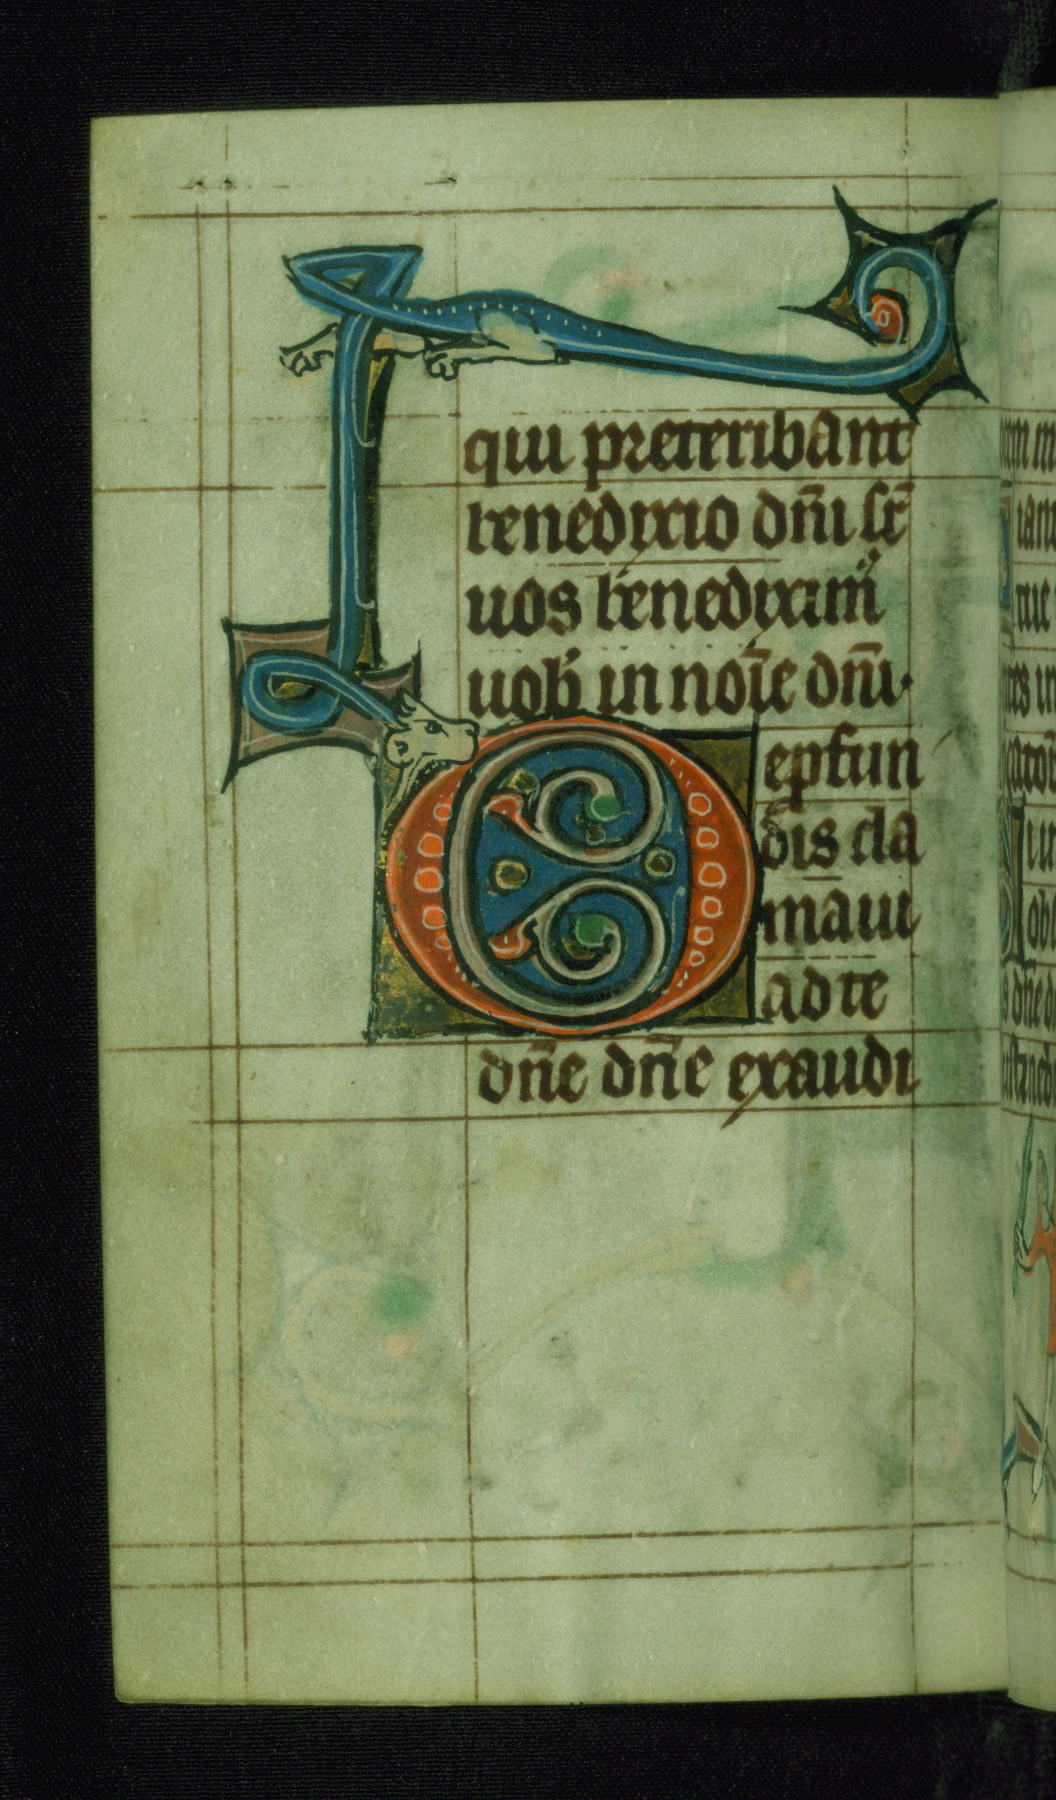 qui preteribant
benedixio dn̄i sr̄
uos benedixim᷒
uob̄ in noīe dn̄i.
D epfun
dis cla
maui
ad te
dn̄e dn̄e exaudi